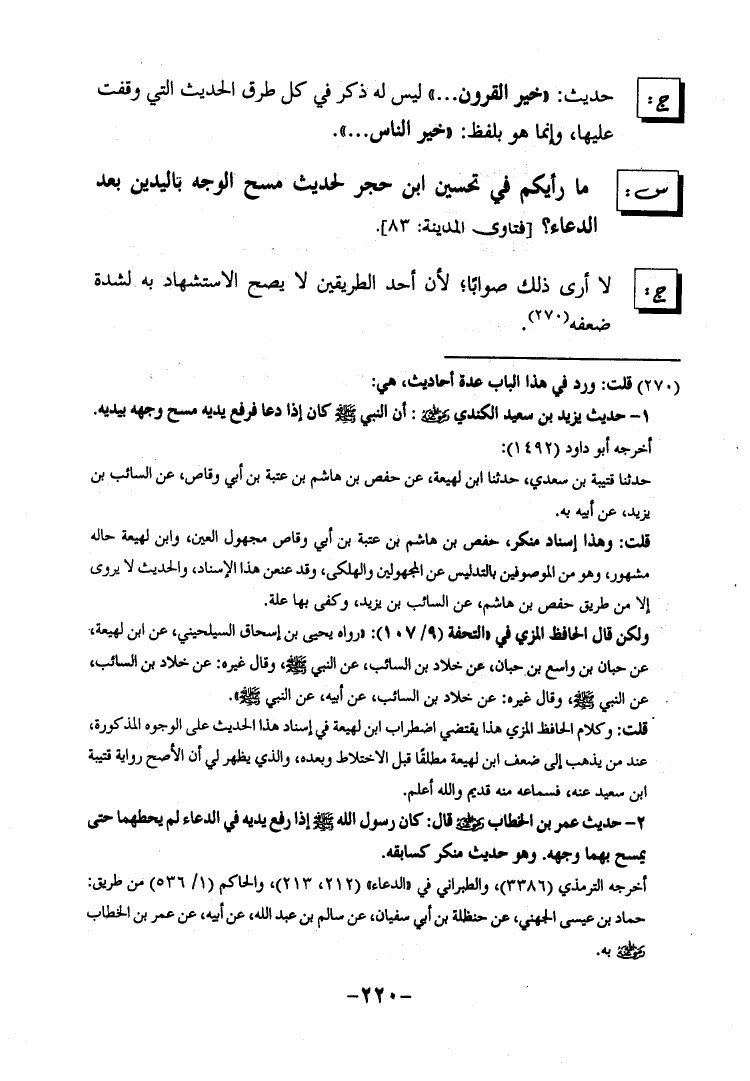 ج: حديث: «خير القرون...» ليس له ذكر في كل طرق الحديث التي وقفت
عليها، وإنما هو بلفظ: «خير الناس...».
س: ما رأيكم في تحسين ابن حجر لحديث مسح الوجه باليدين بعد
الدعاء؟ [فتاوى المدينة: ٨٣].
ج: لا أرى ذلك صوابًا؛ لأن أحد الطريقين لا يصح الاستشهاد به لشدة
ضعفه(٢٧٠).
(٢٧٠) قلت: ورد في هذا الباب عدة أحاديث، هي:
١- حديث يزيد بن سعيد الكندي رضي الله عنه : أن النبي ﷺ كان إذا دعا فرفع يديه مسح وجهه بيديه.
أخرجه أبو داود (١٤٩٢):
حدثنا قتيبة بن سعدي، حدثنا ابن لهيعة، عن حفص بن هاشم بن عتبة بن أبي وقاص، عن السائب بن
يزيد، عن أبيه به.
قلت: وهذا إسناد منكر، حفص بن هاشم بن عتبة بن أبي وقاص مجهول العين، وابن لهيعة حاله
مشهور، وهو من الموصوفين بالتدليس عن المجهولين والهلكى، وقد عنعن هذا الإسناد، والحديث لا يروى
إلا من طريق حفص بن هاشم، عن السائب بن يزيد، وكفى بها علة.
ولكن قال الحافظ المزي في «التحفة (٩/ ١٠٧): «رواه يحيى بن إسحاق السيلحيني، عن ابن لهيعة،
عن حبان بن واسع بن حبان، عن خلاد بن السائب، عن النبي ﷺ، وقال غيره: عن خلاد بن السائب،
عن النبي ﷺ، وقال غيره: عن خلاد بن السائب، عن أبيه، عن النبي ﷺ».
قلت: وكلام الحافظ المزي هذا يقتضي اضطراب ابن لهيعة في إسناد هذا الحديث على الوجوه المذكورة،
عند من يذهب إلى ضعف ابن لهيعة مطلقًا قبل الاختلاط وبعده، والذي يظهر لي أن الأصح رواية قتيبة
ابن سعيد عنه، فسماعه منه قديم والله أعلم.
٢- حديث عمر بن الخطاب رضي الله عنه قال: كان رسول الله ﷺ إذا رفع يديه في الدعاء لم يحطهما حتى
يمسح بهما وجهه. وهو حديث منكر كسابقه.
أخرجه الترمذي (٣٣٨٦)، والطبراني في «الدعاء» (٢١٢، ٢١٣)، والحاكم (١/ ٥٣٦) من طريق:
حماد بن عيسى الجهني، عن حنظلة بن أبي سفيان، عن سالم بن عبد الله، عن أبيه، عن عمر بن الخطاب
رضي الله عنه به.
-٢٢٠-